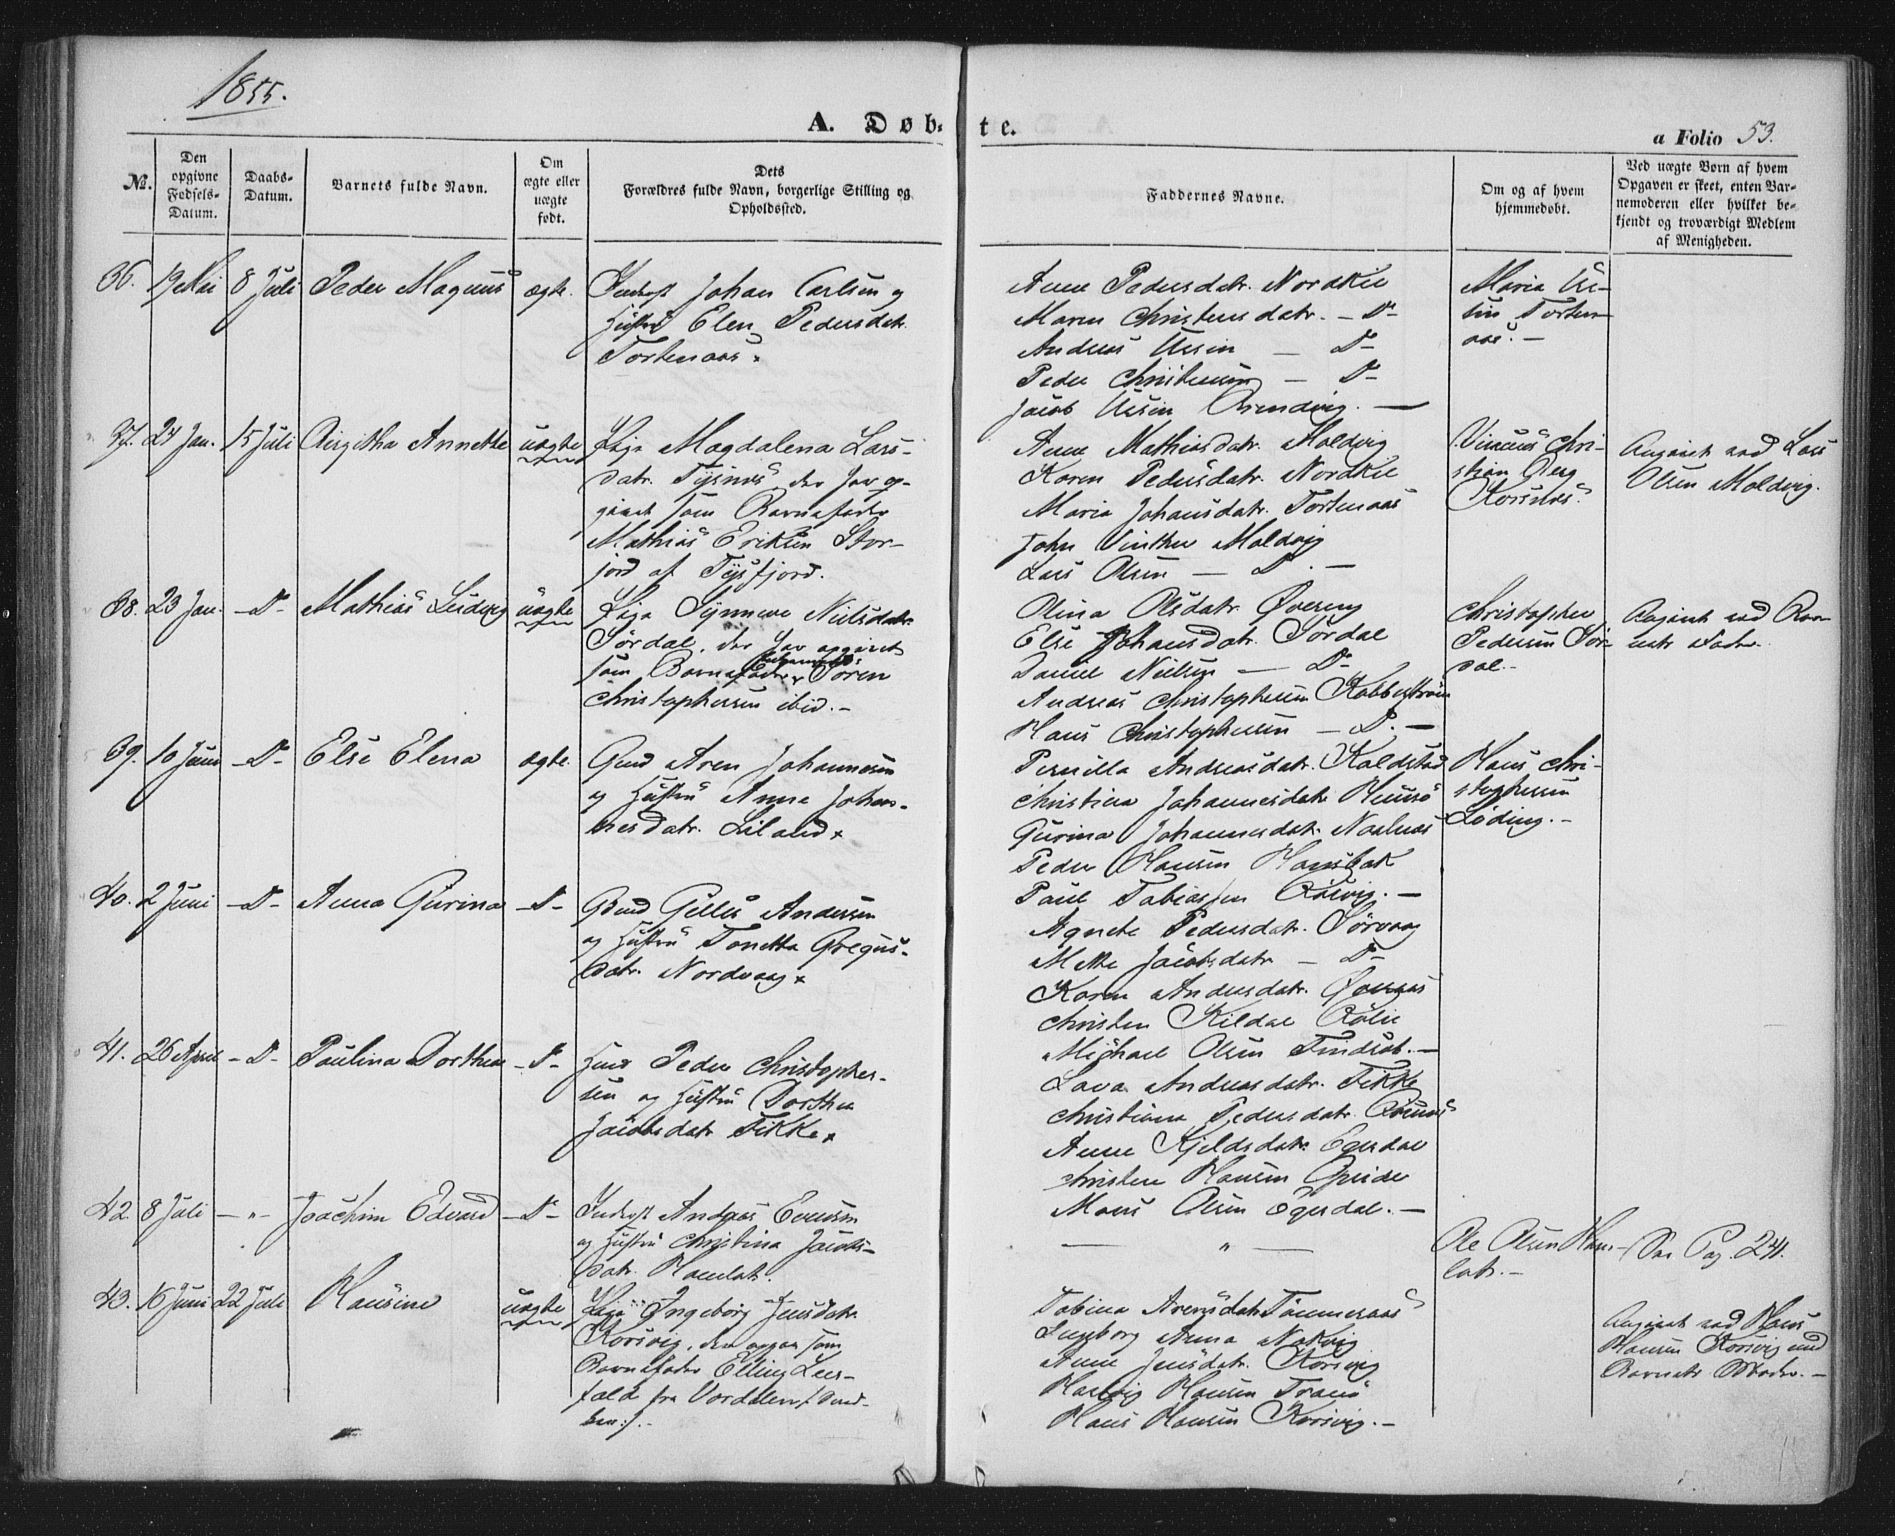 1855.
A. Døb-
te.
a Folio 53.
No.
Den
opgivne
Fødsels-
Datum.
Daabs-
Datum.
Barnets fulde Navn.
Om
ægte eller
uægte
født.
Dets
Forældres fulde Navn, borgerlige Stilling og
Opholdssted.
Faddernes Navne.
Om og af hvem
hjemmedøbt.
Ved uægte Børn af hvem
Opgaven er skeet, enten Bar-
nemoderen eller hvilket be-
kjendt og troværdigt Medlem
af Menigheden.
36. 19 Mai 8 Juli Peder Magnus ægte. Inderst Johan Carlsen og
Hustru Elen Pedersdatr.
Tortenaas
Anne Pedersdatr. Nordkil
Maren Christensdatr. - Do
Andreas - Do
Peder Christensen - Do
Jacob
Maria
Torten-
aas. -
37. 24 Jan. 15 Juli Birgitha Annette uægte Pige Magdalena Lars-
datr. Tysnes, der har op-
givet som Barnefader
Mathias Eriksen Stor-
jord af Tysfjord.
Anne Mathisdatr. Moldvig
Karen Pedersdatr. Nordkil
Maria Johansdatr. Tortenaas
John Vinther Moldvig
Lars Olsen - Do. -
Chri-
stian Berg
Korsnes.
Angivet ved Lars
Olsen Moldvig.
38. 23 Jan. - Do - Mathias Ludvig uægte Pige Synneve Nielsdatr.
Sørdal, der har opgivet
som Barnefader Søren
Christophersen ibid. -
Olina Olsdatr.
Else Johansdatr. Sørdal
Daniel Nielsen - Do
Andreas Christophersen
Hans Christophersen - Do. -
Christopher
Pedersen Sør-
dal. -
Angivet ved Bar-
nets Fader.
39. 10 Juni - Do - Else Elena ægte. Gmd Aren Johannesen
og Hustru Anna Johan-
nesdatr. Liland
Pernilla Andreasdatr. Koldstad
Christina Johannesdatr.
Gurina Johannesdatr.
Peder Hansen Hansbak
Paul Tobiassen Rosvig. -
Hans Chri-
stophersen
Løding. -
40. 2 Juni - Do - Anna Gurina - Do - Gmd Gellus Andersen
og Hustru Tonetta Gregus-
datr. Nordvaag
Agnete Pedersdatr. Sørvaag
Mette Jacobsdatr - Do
Karen Andersdatr.
Christen Kildal
Michael Olsen
41. 26 April - Do - Paulina Dorthea - Do - Huus Peder Christopher-
sen og Hustru Dorthea
Jacobsdatr Fikke
Lava Andreasdatr. Fikke
Christiana Pedersdatr.
Anne Kjeldsdatr Egerdal
Christen Hansen
Mons Olsen Egerdal. -
42. 8 Juli - " - Joachim Edvard - Do - Inderst Andreas Evensen
og Hustru Christina Jacobs-
datr.
- " -
Ole Olsen
Pag. 241.
43. 16 Juni 22 Juli Hansine uægte Pige Ingeborg Jensdatr.
Korsvig, der opgav som
Barnefader Elling Leer-
fald fra Værdalen
Tobina Arensdatr
Ingeborg Anna
Anne Jensdatr. Korsvig
Hartvig Hansen Tranø
Hans Hansen Korsvig. -
Angivet ved Hans
Hansen Korsvig med
Barnets Moder. -